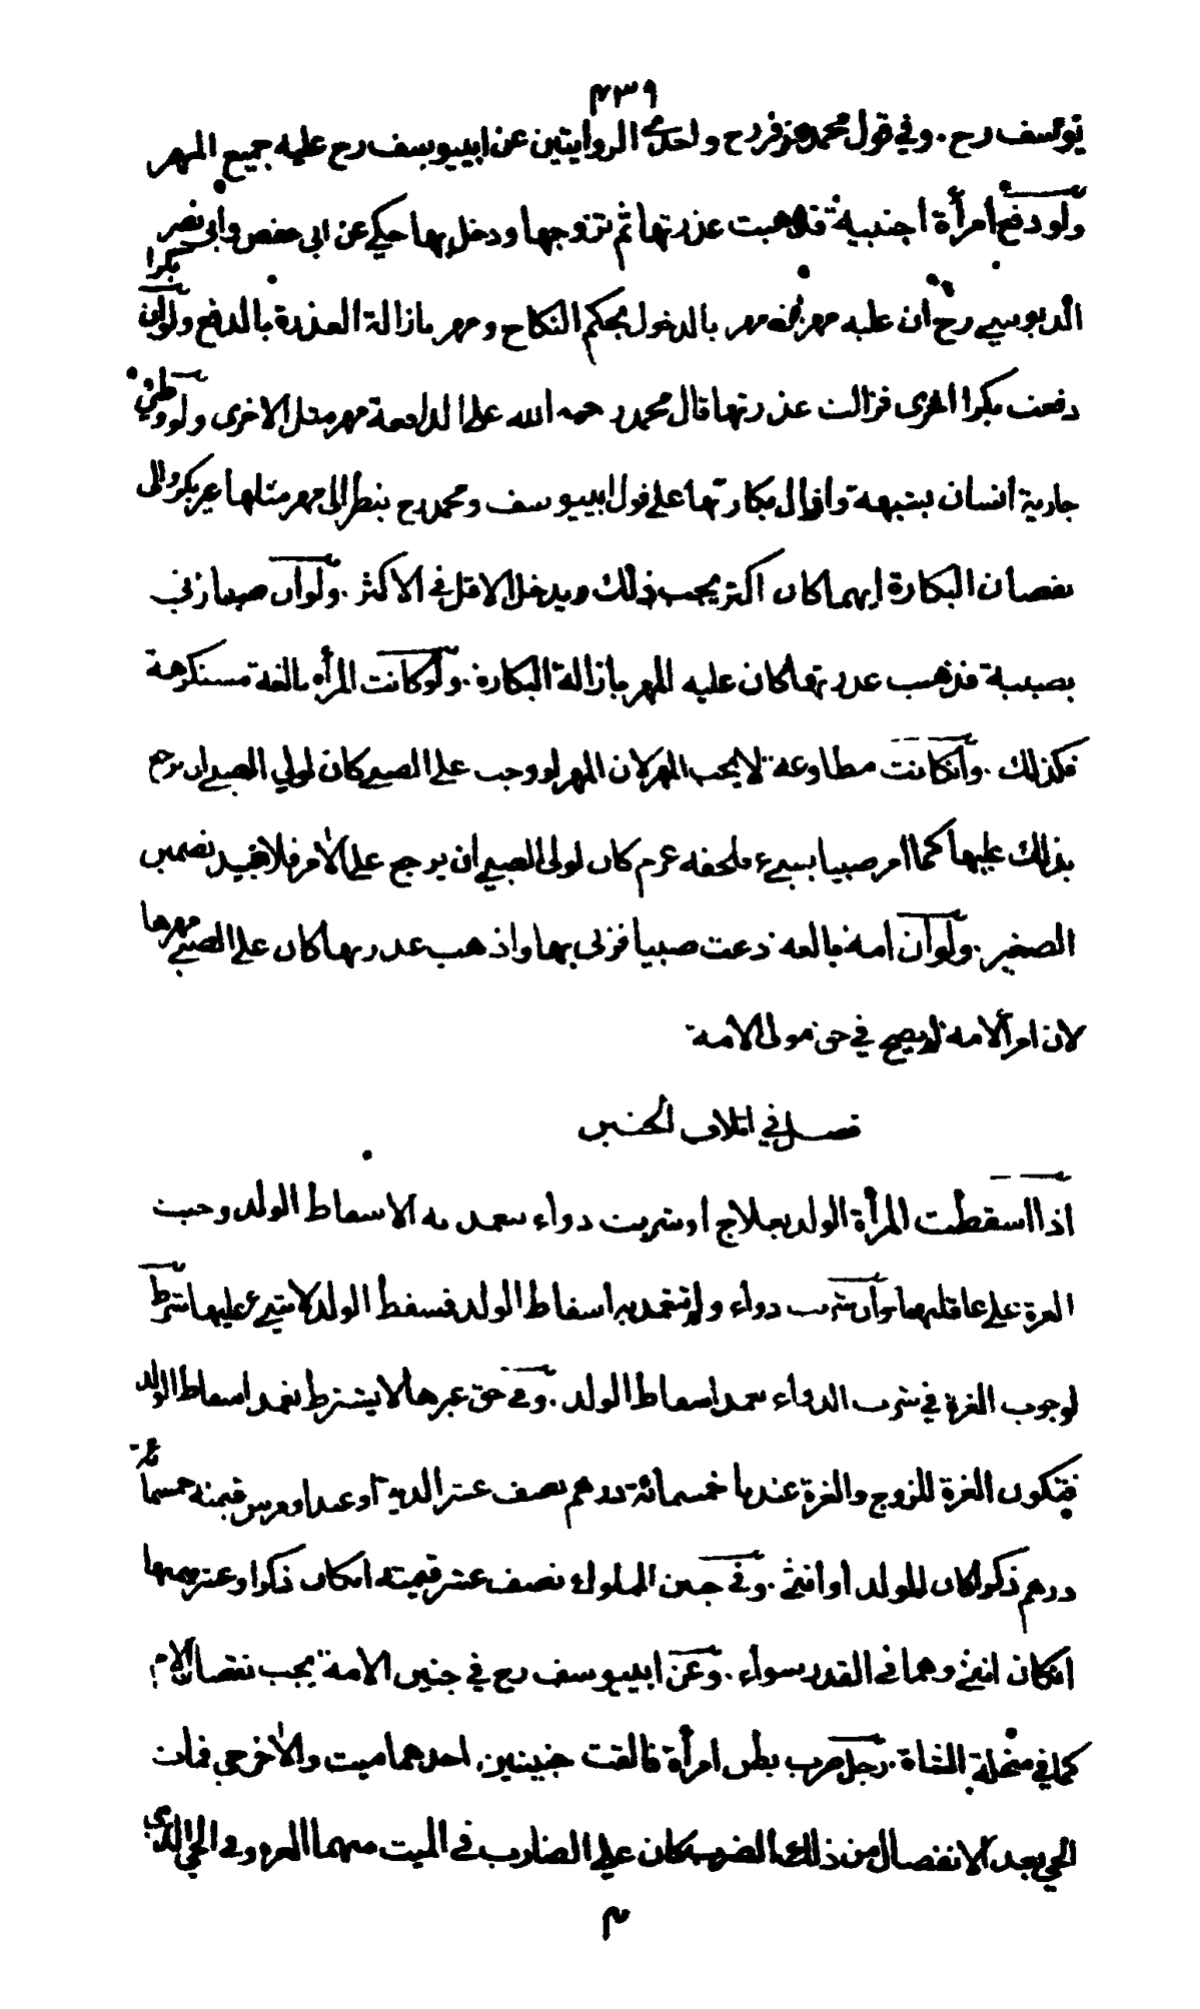 ٤٣٩
يوسف رح . وفي قول محمد وزفر رح واحدى الروايتين عن ابييوسف رح عليه جميع المهر
ولو دفع امرأة اجنبية فذهبت عذرتها ثم تزوجها ودخل بها حكي عن ابي حفص وابي نصر
الدبوسي رح ان عليه مهرين مهر بالدخول بحكم النكاح ومهر بازالة العذرة بالدفع ولو ان بكرا
دفعت بكرا اخرى فزالت عذرتها قال محمد رحمه الله على الدافعة مهر مثل الاخرى ولو وطئ
جارية انسان بشبهة وازال بكارتها على قول ابييوسف ومحمد رح ينظر الى مهر مثلها غير بكر والى
نقصان البكارة ايهما كان اكثر يجب ذلك ويدخل الاقل في الاكثر . ولو ان صبيا زنى
بصبية فذهب عذرتها كان عليه المهر بازالة البكارة . ولو كانت المرأة بالغة مستكرهة
فكذلك . وانكانت مطاوعة لا يجب المهر لان المهر لو وجب على الصبي كان لولي الصبي ان يرجع
بذلك عليها كما امر صبيا بشيء فلحقه غرم كان لولي الصبي ان يرجع على الآمر فلا يفيد تضمين
الصغير . ولو ان امة بالغة دعت صبيا فزنى بها واذهب عذرتها كان على الصبي مهرها
لان امر الامة لم يصح في حق مولى الامة
فصل في اتلاف الجنين
اذا اسقطت المرأة الولد بعلاج او شربت دواء تعمد به الاسقاط الولد وجبت
الغرة على عاقلتها وان شربت دواء ولم تتعمد به اسقاط الولد فسقط الولد لا شيء عليها شرط
لوجوب الغرة في شرب الدواء تعمد اسقاط الولد . وفي حق غيرها لا يشترط تعمد اسقاط الولد
فتكون الغرة للزوج والغرة عندنا خمسمائة درهم نصف عشر الدية او عبد او فرس قيمته خمسمائة
درهم ذكرا كان للولد او انثى . وفي جنين المملوك نصف عشر قيمته انكان ذكرا وعشر قيمتها
انكان انثى وهما في القدر سواء . وعن ابييوسف رح في جنين الامة يجب نقصان الام
كما في الشاة . رجل ضرب بطن امرأة فالقت جنينين احدهما ميت والآخر حي فمات
الحي بعد الانفصال من ذلك الضرب كان على الضارب في الميت منهما الغرة وفي الحي الدية